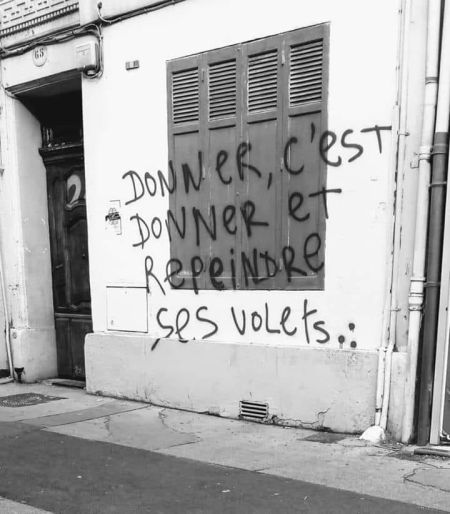 65
DONNER, c'est
DONNER et
RePeiNDRe
ses voLets..